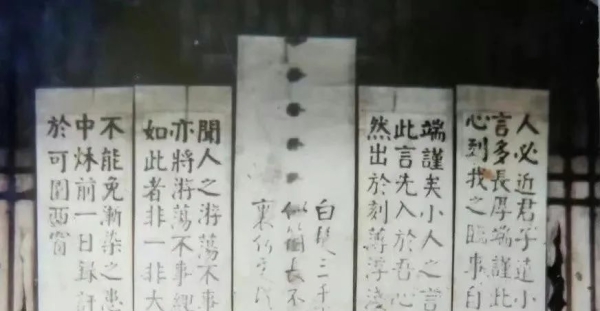 人必近君子遠小
言多長厚端謹此
心到我之臨事自
端謹矣小人之言
此言先入於吾心
然出於刻薄浮
白髮三千
似個長不
裏何處
聞人之游蕩不事
亦將游蕩不事繩
如此者非一非大
不能免漸染之患
中秌前一日錄
於可園西窗